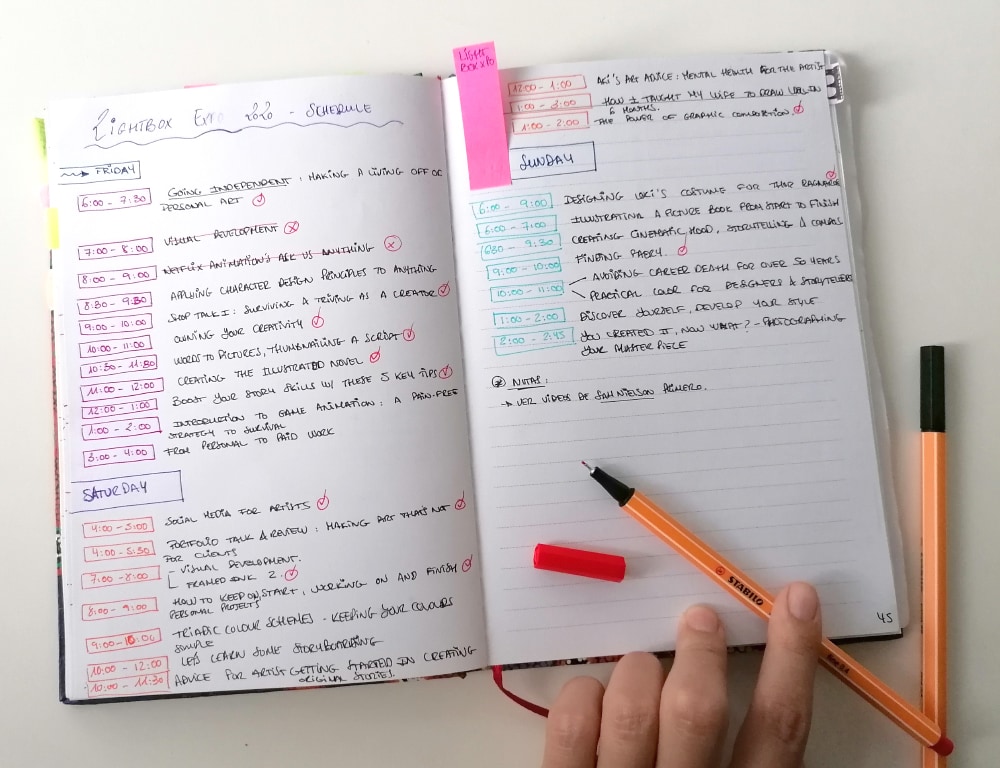 LIGHTBOX EXPO 2020 - SCHEDULE
FRIDAY
6:00 - 7:30
GOING INDEPENDENT : MAKING A LIVING OFF OF
PERSONAL ART
7:00 - 8:00
VISUAL DEVELOPMENT
8:00 - 9:00
NETFLIX ANIMATION'S ASK US ANYTHING
8:30 - 9:30
APPLYING CHARACTER DESIGN PRINCIPLES TO ANYTHING
9:00 - 10:00
SHOP TALK I : SURVIVING & TRIVING AS A CREATOR
10:00 - 11:00
OWNING YOUR CREATIVITY
10:30 - 11:30
WORDS TO PICTURES, THUMBNAILING A SCRIPT
11:00 - 12:00
CREATING THE ILLUSTRATED NOVEL
12:00 - 1:00
BOOST YOUR STORY SKILLS W/ THESE 5 KEY TIPS
1:00 - 2:00
INTRODUCTION TO GAME ANIMATION : A PAIN-FREE
STRATEGY TO SURVIVAL
3:00 - 4:00
FROM PERSONAL TO PAID WORK
SATURDAY
4:00 - 5:00
SOCIAL MEDIA FOR ARTISTS
4:00 - 5:30
PORTFOLIO TALK & REVIEW : MAKING ART THAT'S NOT
FOR CLIENTS
7:00 - 8:00
- VISUAL DEVELOPMENT.
FRAMED INK 2.
8:00 - 9:00
HOW TO KEEP ON, START, WORKING ON AND FINISH
PERSONAL PROJECTS
9:00 - 10:00
TRIADIC COLOUR SCHEMES - KEEPING YOUR COLOURS
SIMPLE
10:00 - 12:00
LETS LEARN SOME STORYBOARDING
10:00 - 11:30
ADVICE FOR ARTIST GETTING STARTED IN CREATING
ORIGINAL STORIES.
LIGHT
BOX XPO
12:00 - 1:00
'S ART ADVICE : MENTAL HEALTH FOR THE ARTIST
1:00 - 3:00
HOW I TAUGHT MY WIFE TO DRAW WELL IN
6 MONTHS.
1:00 - 2:00
THE POWER OF GRAPHIC COMPOSITION.
SUNDAY
6:00 - 9:00
DESIGNING LOKI'S COSTUME FOR THOR RAGNAROK
6:00 - 7:00
ILLUSTRATING A PICTURE BOOK FROM START TO FINISH
630 - 9:30
CREATING CINEMATIC MOOD, STORYTELLING &
9:00 - 10:00
FINDING
10:00 - 11:00
AVOIDING CAREER DEATH FOR OVER 50 YEARS
PRACTICAL COLOR FOR DESIGNERS & STORYTELLERS
1:00 - 2:00
DISCOVER YOURSELF, DEVELOP YOUR STYLE
2:00 - 2:45
YOU CREATED IT, NOW WHAT? - PHOTOGRAPHING
YOUR MASTERPIECE
NOTAS :
→ VER VIDEOS DE SAM NIELSON PRIMERO.
STABILO
45